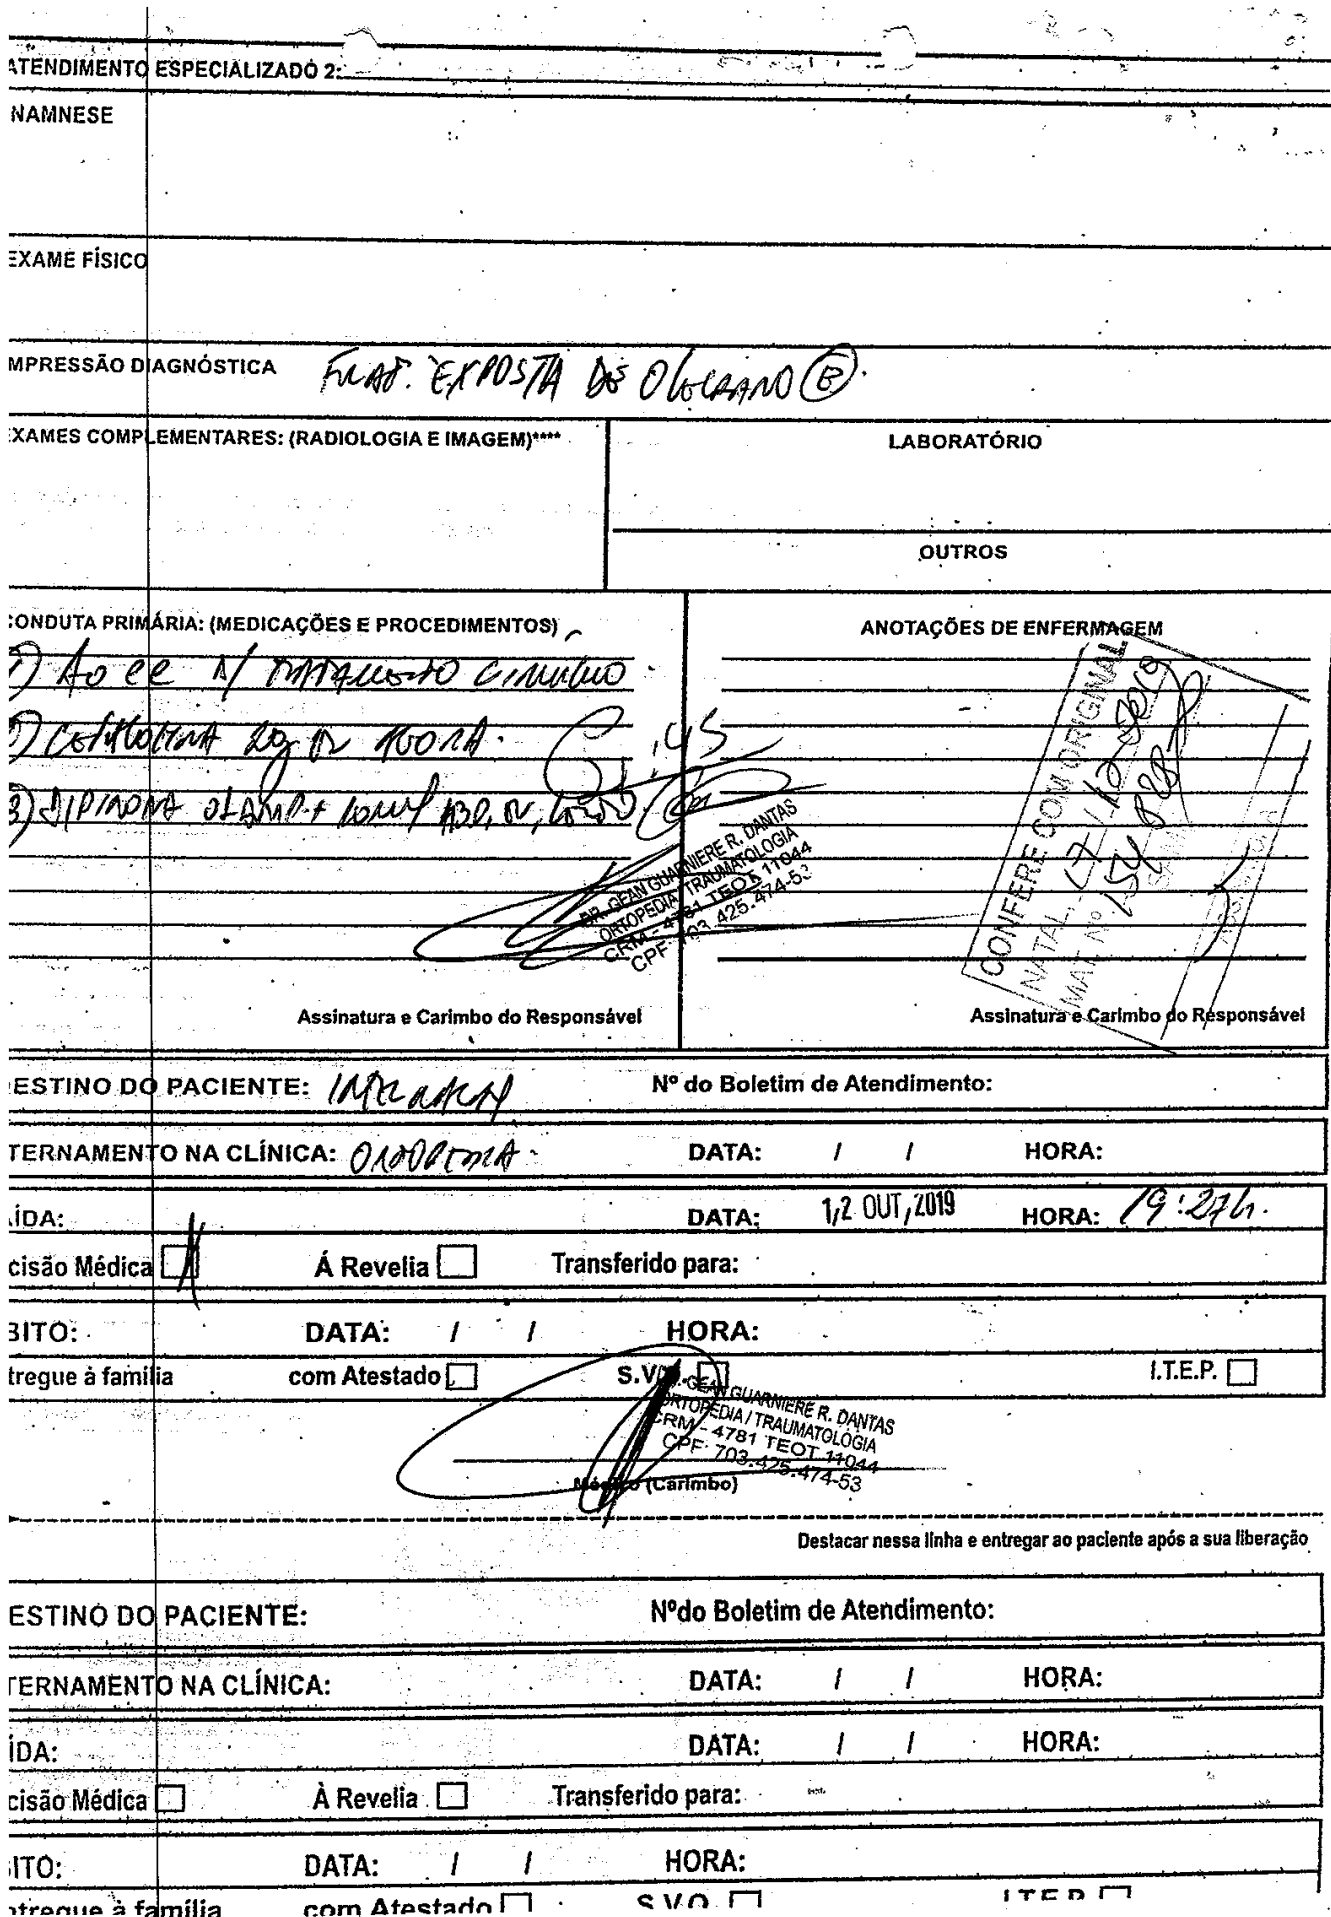 ATENDIMENTO ESPECIALIZADO 2:
NAMNESE
EXAME FÍSICO
MPRESSÃO DIAGNÓSTICA FRAT. EXPOSTA DE OLECRANO (E).
EXAMES COMPLEMENTARES: (RADIOLOGIA E IMAGEM)****
LABORATÓRIO
OUTROS
CONDUTA PRIMÁRIA: (MEDICAÇÕES E PROCEDIMENTOS)
1) Ao CC P/ TRATAMENTO CIRURGICO.
2) CEFALOTINA 2g IV AGORA.
3) DIPIRONA 01 AMP +
DR. GEAN GUARNIERE R. DANTAS
ORTOPEDIA / TRAUMATOLOGIA
CRM - 4781 TEOT 11044
CPF: 703.425.474-53
Assinatura e Carimbo do Responsável
ANOTAÇÕES DE ENFERMAGEM
CONFERE COM ORIGINAL
NATAL,
MAT. Nº
Assinatura e Carimbo do Responsável
ESTINO DO PACIENTE: INTERNAÇÃO Nº do Boletim de Atendimento:
TERNAMENTO NA CLÍNICA: ORTOPEDIA. DATA: / / HORA:
ÍDA: DATA: 12 OUT 2019 HORA: 19:27h.
cisão Médica Á Revelia Transferido para:
BITO: DATA: / / HORA:
tregue à família com Atestado S.V.O. I.T.E.P.
DR. GEAN GUARNIERE R. DANTAS
ORTOPEDIA / TRAUMATOLOGIA
CRM - 4781 TEOT 11044
CPF: 703.425.474-53
Médico (Carimbo)
Destacar nessa linha e entregar ao paciente após a sua liberação
ESTINO DO PACIENTE: Nºdo Boletim de Atendimento:
TERNAMENTO NA CLÍNICA: DATA: / / HORA:
ÍDA: DATA: / / HORA:
cisão Médica À Revelia Transferido para:
ITO: DATA: / / HORA:
ntregue à família com Atestado S.V.O. I.T.E.P.